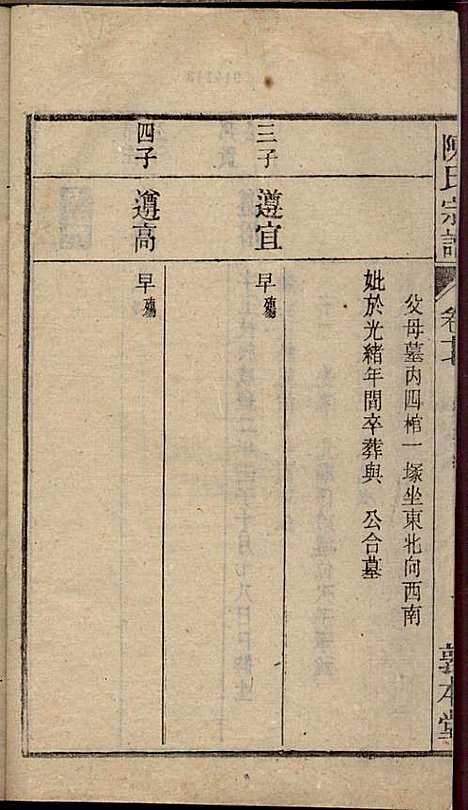 陳氏宗譜
卷十七
敦本堂
父母墓內四棺一塚坐東北向西南
妣於光緒年間卒葬與 公合墓
三子
遵宜
早殤
四子
遵高
早殤